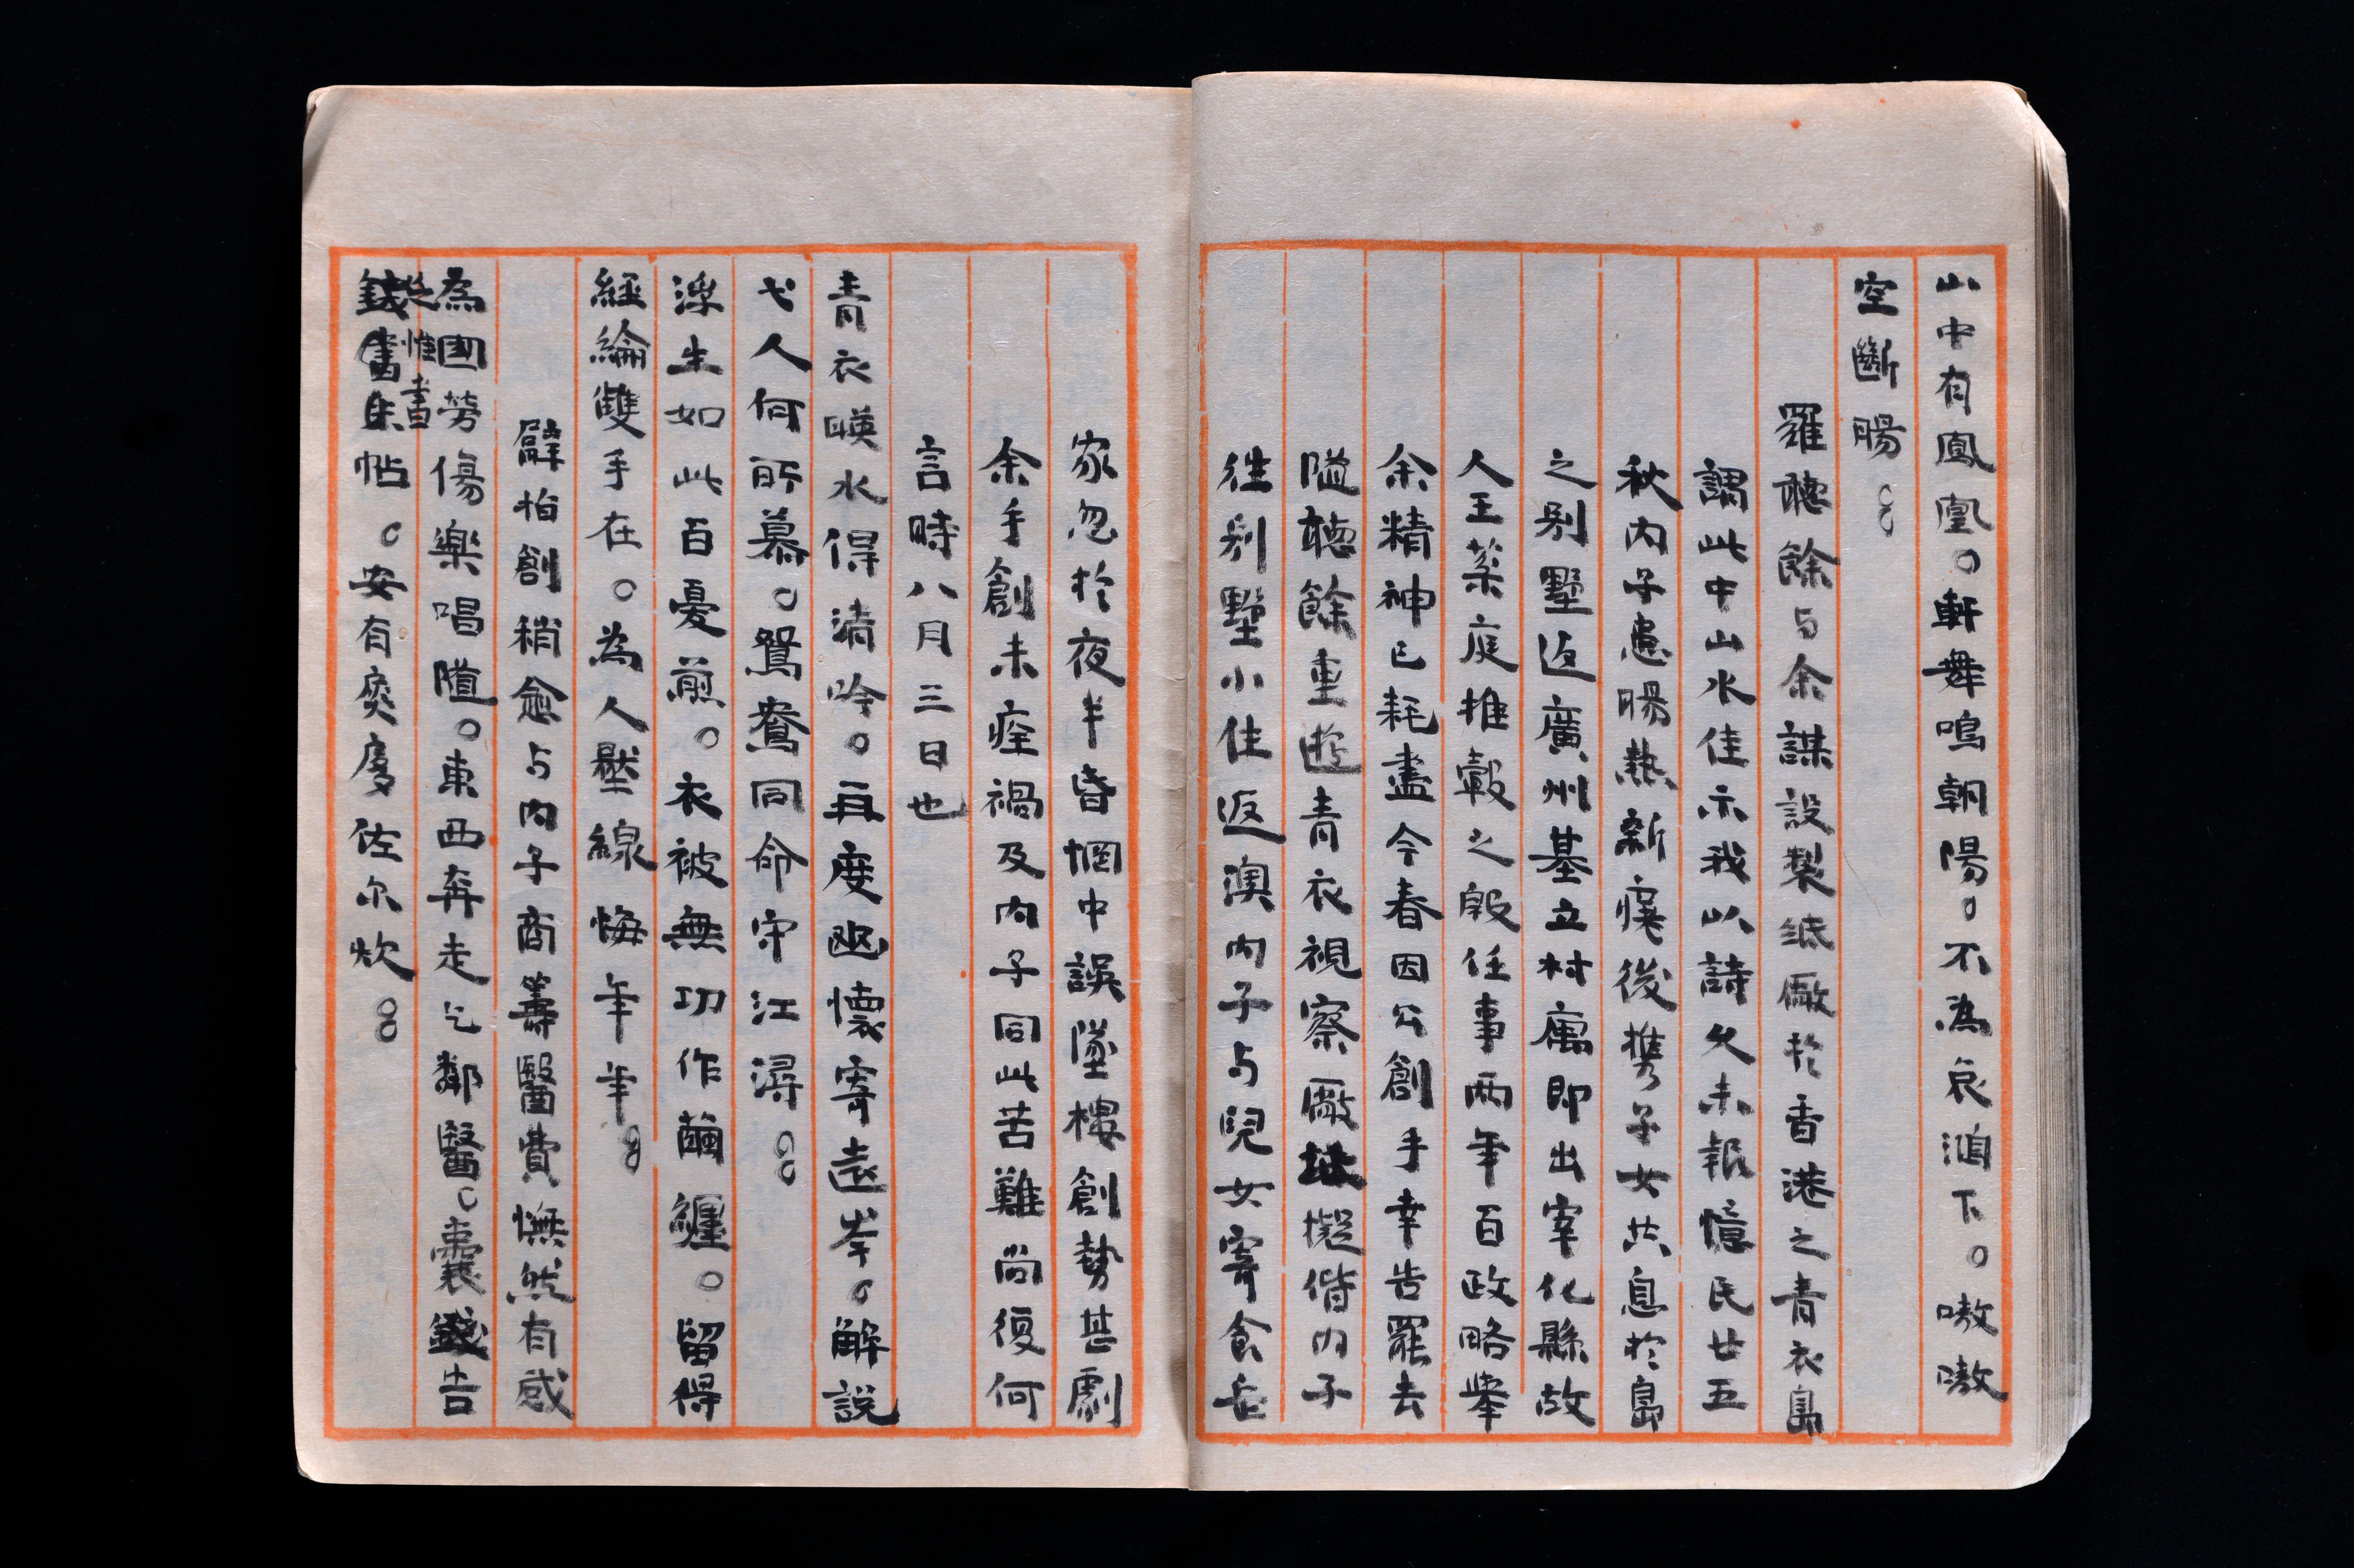 山中有鳳凰。軒舞鳴朝陽。不為哀鴻下。嗷嗷
空斷腸。。
羅聽餘与余謀設製紙廠於香港之青衣島
謂此中山水佳示我以詩久未報憶民廿五
秋内子患腸熱新瘥後携子女共息於島
之别墅返廣州基立村寓即出宰化縣故
人王菉庭推轂之殷任事兩年百政略舉
余精神已耗盡今春因公創手幸告罷去
隨聽餘重遊青衣視察廠址擬偕内子
往别墅小住返澳内子与兒女寄食岳
家忽於夜半昏惘中誤墜樓創勢甚劇
余手創未痊禍及内子同此苦難尚復何
言時八月三日也
青衣暎水得清吟。再度幽懷寄遠岑。解説
弋人何所慕。鴛鴦同命守江潯。。
浮生如此百憂煎。衣被無功作繭纏。留得
經綸雙手在。為人壓線悔年年。。
臂指創稍愈与内子商籌醫費憮然有感
為國勞傷樂唱隨。東西奔走乞鄰醫。囊錢告
惟書
帖。安有奕廖佐尔炊。。